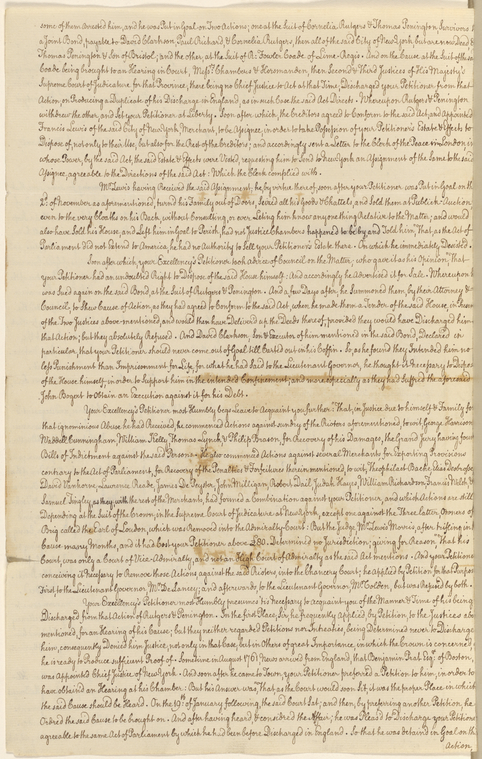 some of them Arrested him, and he was Put in Goal on Two Actions; one at the Suit of Cornelia Rutgers & Thomas Penington, Survivors in
a Joint Bond, payable to David Clarkson, Paul Richard, & Cornelia Rutgers, then all of the said City of New York, but are now Dead &
Thomas Penington & Son of Bristol; and the other, at the Suit of Mr. Fowler Coade of Lime-Regis. And on the Cause at the Suit of the said
Coade being brought to an Hearing in Court; Messrs. Chambers & Horsmanden, then Second & Third Justices of His Majesty's
Supreme Court of Judicature, for that Province; there being no Chief Justice to Act at that Time, Discharged your Petitioner from that
Action, on Producing a Duplicate of his Discharge in England, as in such Case the said Act Directs. Whereupon Rutgers & Penington
withdrew the other, and Set your Petitioner at Liberty. Soon after which, the Creditors agreed to Conform to the said Act, and Appointed
Francis Lewis of the said City of New York Merchant, to be Assignee, in order to take Possession of your Petitioner's Estate & Effects to
Dispose of, not only to their Use, but also for the Rest of the Creditors; and accordingly sent a Letter to the Clerk of the Peace in London in
whose Power, by the said Act, the said Estate & Effects were Vested, requesting him to Send to New York an Assignment of the Same to the said
Assignee, agreeable to the Directions of the said Act. Which the Clerk complied with.
Mr. Lewis having Received the said Assignment, he, by virtue thereof, soon after your Petitioner was Put in Goal on the
2d. of November as aforementioned, turn'd his Family out of Doors, Seized all his Goods & Chattels and Sold them at Publick Auction
even to the very Cloaths on his Back, without Consulting, or ever Letting him know any thing Relative to the Matter; and would
also have Sold his House, and Left him in Goal to Perish, had not Justice Chambers happened to be by and Told him, "That, as the Act of
Parliament did not Extend to America, he had no Authority to Sell your Petitioner's Estate there. On which he immediately Desisted.
Soon after which, your Excellency's Petitioner took Advice of Council on the Matter; who gave it as his Opinion, "That
your Petitioner had an undoubted Right to Dispose of the said House himself: And accordingly he Advertised it for Sale. Whereupon he
was Sued again on the said Bond, at the Suit of Rutgers & Penington. And a few Days after, he Summoned them, by their Attorney &
Council, to Shew Cause of Action, as they had agreed to Conform to the said Act; when he made them a Tender of the said House, in Presence
of the Two Justices above-mentioned, and would then have Delivered up the Deeds thereof, provided they would have Discharged him
that Action; but they absolutely Refused. And David Clarkson, Son & Executor of him mentioned in the said Bond, Declared in
particular, that your Petitioner should never come out of Goal till Carted out in his Coffin. So, as he found they Intended him no
less Punishment than Imprisonment for Life, for what he had Paid to the Lieutenant Governor, he thought it necessary to Dispose
of the House himself, in order to support him in the intended Confinement; and more especially as they had Suffered the aforesaid
John Bogert to Obtain an Execution against it for his Debt.
Your Excellency's Petitioner most Humbly begs Leave to Acquaint you further: That, in Justice due to himself & Family for
that ignominious Abuse he had Received, he commenced Actions against sundry of the Rioters aforementioned, to wit, George Harison
Waddell Cunningham, William Kelly, Thomas Lynch & Philip Branson, for Recovery of his Damages, the Grand Jury having found
Bills of Indictment against the said Persons. He also commenced Actions against several Merchants for Exporting Provisions
contrary to the Act of Parliament, for Recovery of the Penalties & Forfeitures therein mentioned, to wit, Theophilact Bache,
David Vanhorne, Lawrence Reade, James De Peyster, John Milligan, Robert Dail, Judah Hayes, William Richardson, Francis Welsh &
Samuel Tingley, as they with the rest of the Merchants, had formed a Combination against your Petitioner, and which Actions are still
Depending at the Suit of the Crown, in the Supreme Court of Judicature at New York, except one against the Three latter, Owners of
Brig called the Earl of London, which was Removed into the Admiralty Court: But the Judge Mr. Lewis Morris, after trifling in the
Cause many Months, and it had Cost your Petitioner above £80. Determined no Jurisdiction; giving for Reason, "That his
Court was only a Court of Vice-Admiralty, and not an High Court of Admiralty as the said Act mentions. And your Petitioner
conceiving it Necessary to Remove those Actions against the said Rioters, into the Chancery Court; he applied by Petition for that Purpose
First, to the Lieutenant Governor, Mr. De Lancey; and afterwards to the Lieutenant Governor, Mr. Colden, but was Refused by both.
Your Excellency's Petitioner most Humbly presumes it is Necessary to acquaint you of the Manner & Time of his being
Discharged from that Action of Rutgers & Penington. In the first Place, Sir, he frequently applied by Petition to the Justices above
mentioned, for an Hearing of his Cause; but they neither regarded Petitions nor Intreaties, being Determined never to Discharge
him; consequently Denied him Justice, not only in that Case, but in Others of great Importance, in which the Crown is concerned,
he is ready to Produce sufficient Proof of. Sometime in August 1761, News arrived from England, that Benjamin Prat Esqr. of Boston,
was Appointed Chief Justice of New York. And soon after he came to Town, your Petitioner preferred a Petition to him, in order to
have obtained an Hearing at his Chamber: But his Answer was, "That as the Court would soon Sit, it was the proper Place in which
the said Cause should be Heard. On the 19th. of January following, the said Court Sat; and then, by preferring another Petition, he
Ordered the said Cause to be brought on. And after having heard & considered the Affair; he was Pleased to Discharge your Petitioner
agreeable to the same Act of Parliament by which he had been before Discharged in England. So that he was detained in Goal on the
Action,